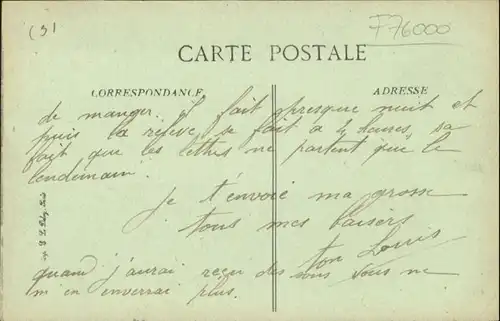 (3)
F76000
CARTE POSTALE
CORRESPONDANCE
ADRESSE
de manger. il fait presque nuit et
puis la relève se fait à 2 heures, sa
fait que les lettres ne partent que le
lendemain.
je t'envoie ma grosse
tous mes baisers
ton Louis
quand j'aurai reçu des sous vous ne
m en enverrai plus.